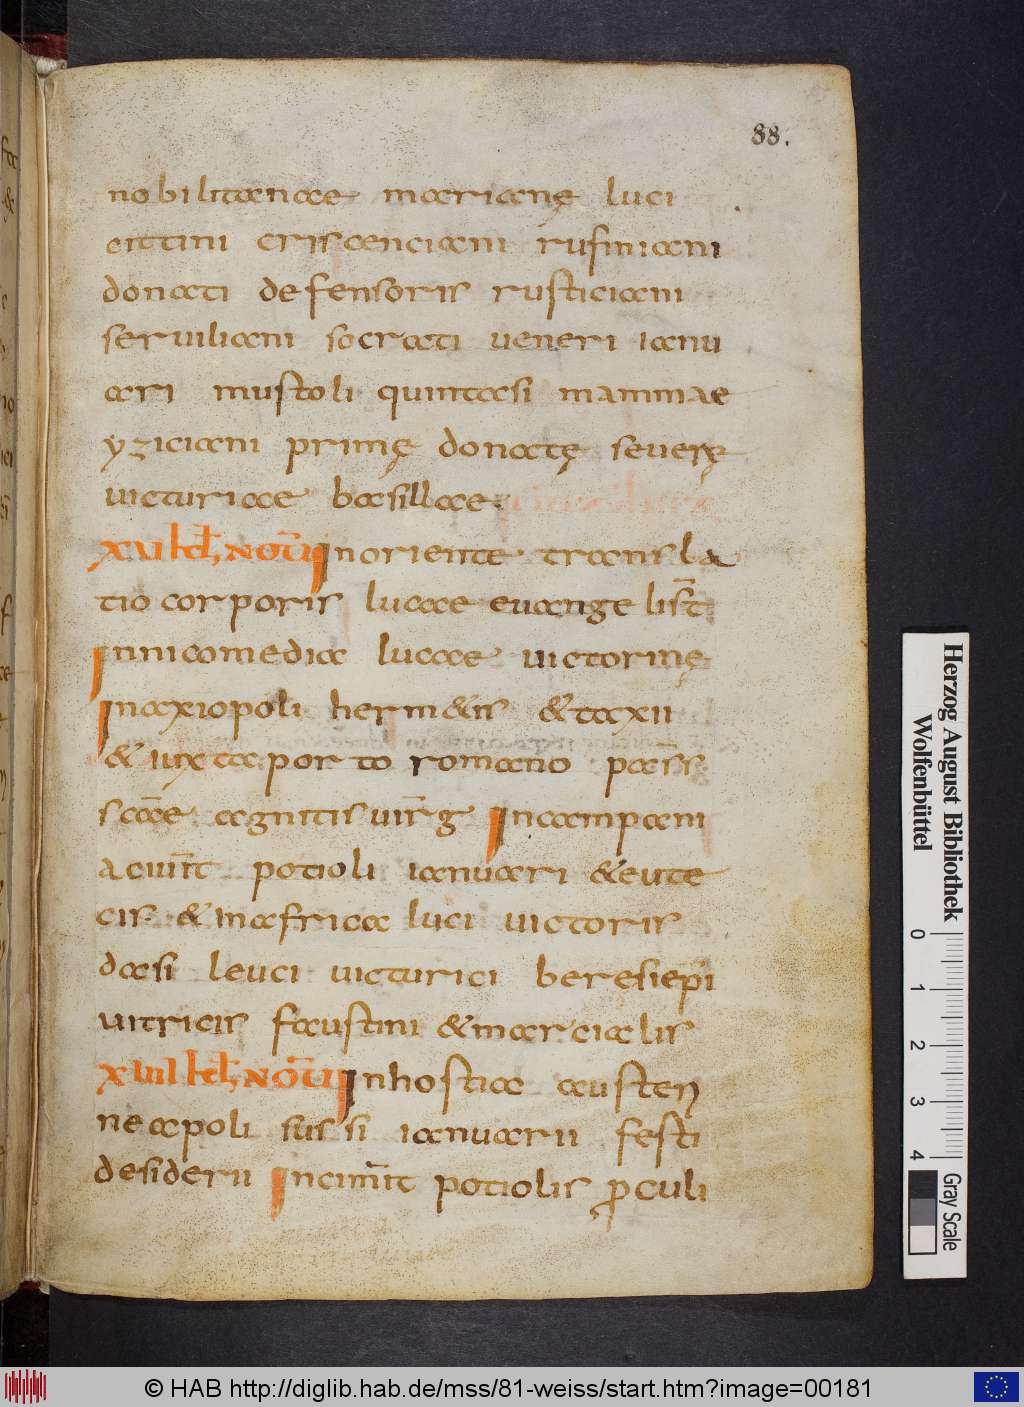 88.
nobilitanae marianę luci
cittini criscenciani rufiniani
donati defensoris rusticiani
seruiliani socrati ueneri ianu
ari mustoli quintasi mammae
yziciani primę donatę seuerę
uicturiae basillae
XVI kƚ, NOṼ Inoriente transla
tio corporis lucae euangelist̃
Innicomedia lucae uictorinę
Inaxiopoli herm&is &taxii
&iuxtaporto romano pass̃
sc̃ae agnitis uirg̃ Incampani
aciuit̃ potioli ianuari &eute
cis &inafrica luci uictoris
dasi leuci uicturici beresiepi
uitricis faustini &marcialis
XIIII kƚ, NOṼ Inhostia austeri
neapoli sussi ianuarii festi
desiderii Inciuit̃ potiolis ꝓculi
Herzog August Bibliothek
Wolfenbüttel
0 1 2 3 4
Gray Scale
© HAB http://diglib.hab.de/mss/81-weiss/start.htm?image=00181